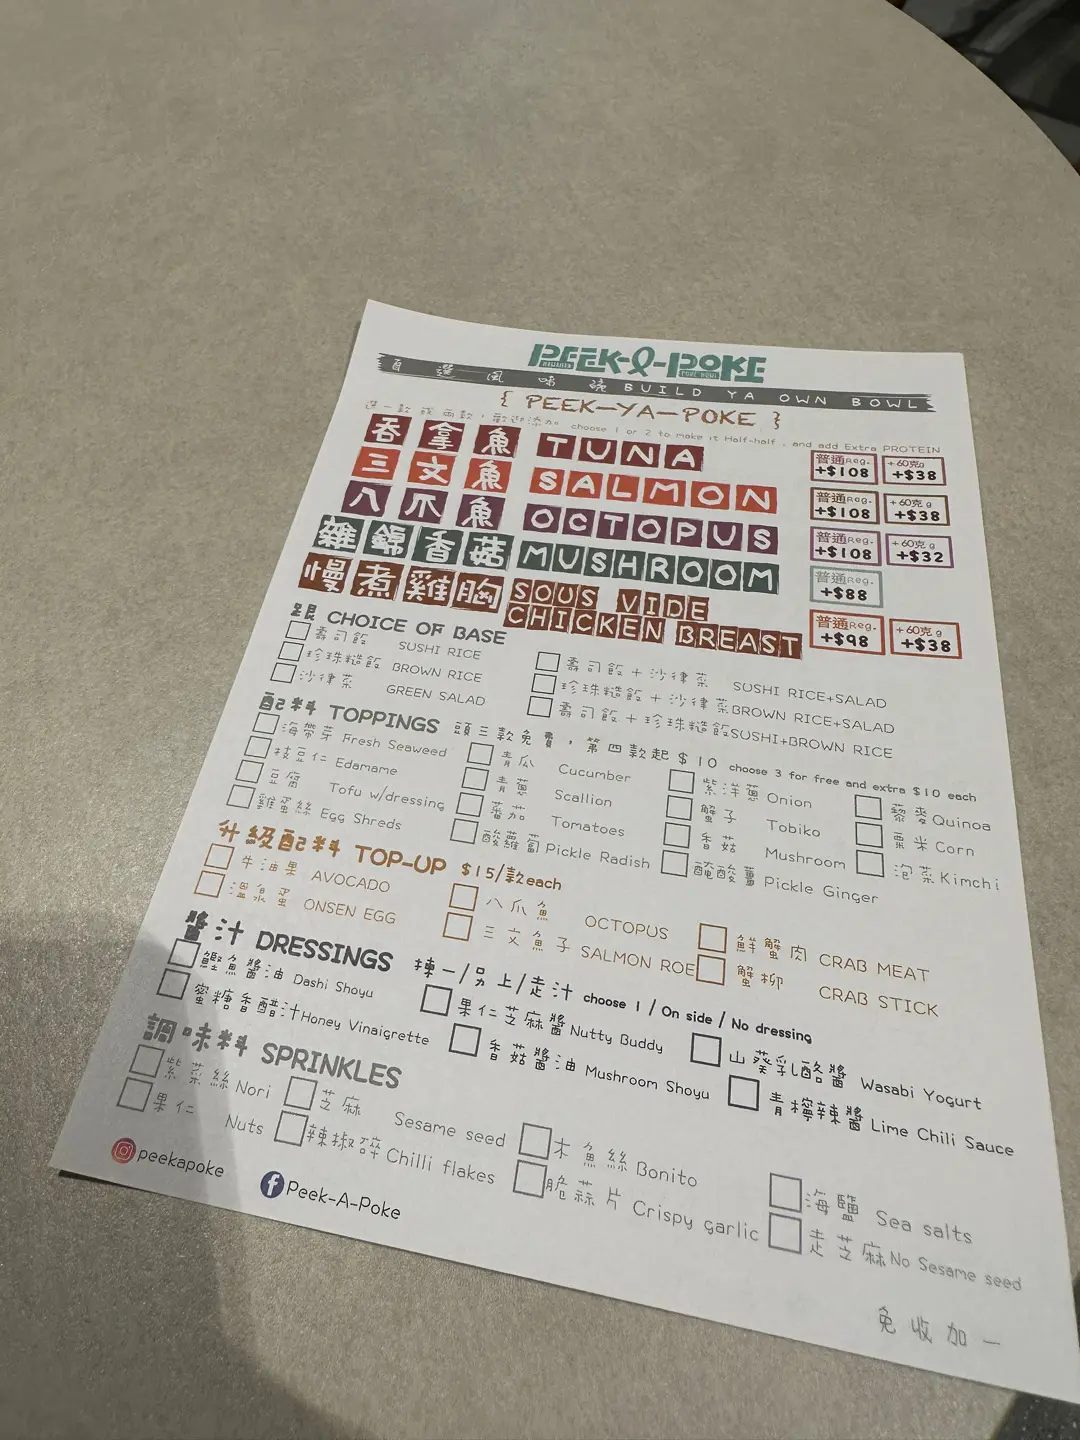 PEEK-A-POKE
HAWAIIAN POKE BOWL
自選風味碗 BUILD YA OWN BOWL
{ PEEK-YA-POKE }
選一款或兩款，歡迎添加 choose 1 or 2 to make it Half-half , and add Extra PROTEIN
吞拿魚 TUNA 普通Reg. +$108 +60克g +$38
三文魚 SALMON 普通Reg. +$108 +60克g +$38
八爪魚 OCTOPUS 普通Reg. +$108 +60克g +$32
雜錦香菇 MUSHROOM 普通Reg. +$88
慢煮雞胸 SOUS VIDE CHICKEN BREAST 普通Reg. +$98 +60克g +$38
CHOICE OF BASE
壽司飯 SUSHI RICE 壽司飯+沙律菜 SUSHI RICE+SALAD
珍珠糙飯 BROWN RICE 珍珠糙飯+沙律菜 BROWN RICE+SALAD
沙律菜 GREEN SALAD 壽司飯+珍珠糙飯 SUSHI+BROWN RICE
配料 TOPPINGS 頭三款免費，第四款起$10 choose 3 for free and extra $10 each
海帶芽 Fresh Seaweed 青瓜 Cucumber 紫洋蔥 Onion 藜麥 Quinoa
枝豆仁 Edamame 青蔥 Scallion 蟹子 Tobiko 粟米 Corn
豆腐 Tofu w/dressing 蕃茄 Tomatoes 香菇 Mushroom 泡菜 Kimchi
雞蛋絲 Egg Shreds 酸蘿蔔 Pickle Radish 醃酸薑 Pickle Ginger
升級配料 TOP-UP $15/款each
牛油果 AVOCADO 八爪魚 OCTOPUS 鮮蟹肉 CRAB MEAT
溫泉蛋 ONSEN EGG 三文魚子 SALMON ROE 蟹柳 CRAB STICK
醬汁 DRESSINGS 揀一/另上/走汁 choose 1 / On side / No dressing
鰹魚醬油 Dashi Shoyu 果仁芝麻醬 Nutty Buddy 山葵乳酪醬 Wasabi Yogurt
蜜糖香醋汁 Honey Vinaigrette 香菇醬油 Mushroom Shoyu 青檸辣醬 Lime Chili Sauce
調味料 SPRINKLES
紫菜絲 Nori 芝麻 Sesame seed 木魚絲 Bonito 海鹽 Sea salts
果仁 Nuts 辣椒碎 Chilli flakes 脆蒜片 Crispy garlic 走芝麻 No Sesame seed
peekapoke Peek-A-Poke
免收加一